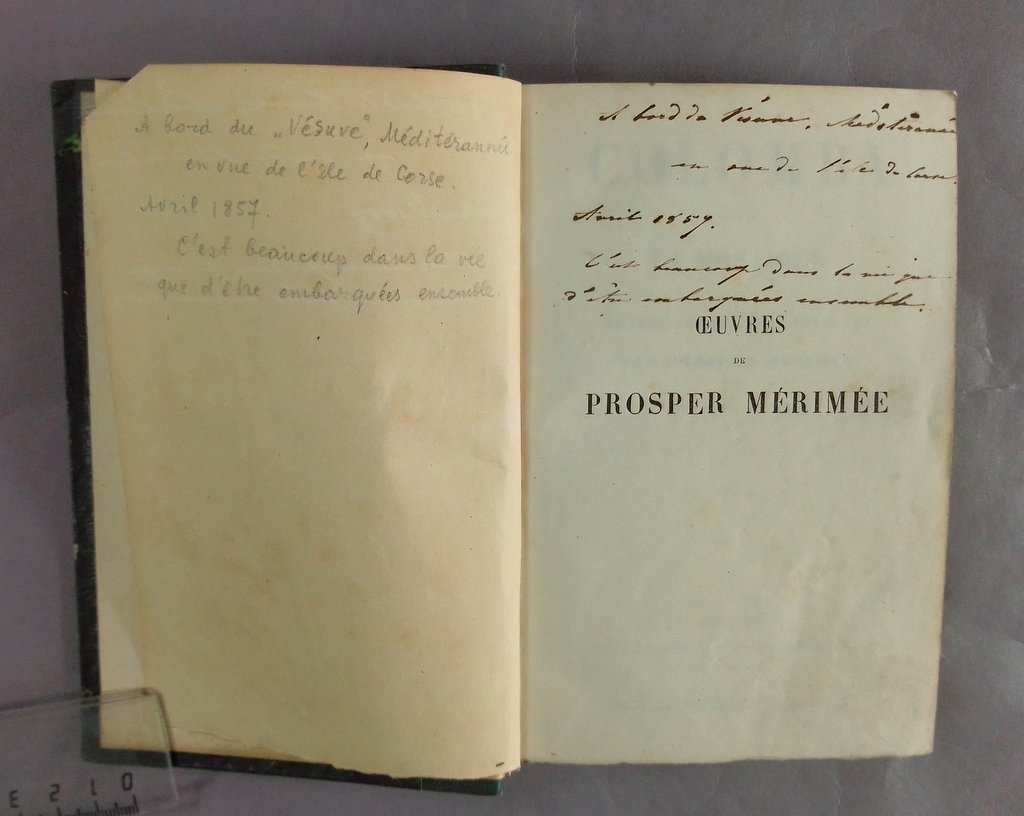 A bord du „Vésuve", Méditérannée
en vue de l'île de Corse.
Avril 1857.
C'est beaucoup dans la vie
que d'être embarquées ensemble.
A bord du Vésuve, Méditérannée
en vue de l'île de Corse.
Avril 1857.
C'est beaucoup dans la vie que
d'être embarquées ensemble.
ŒUVRES
DE
PROSPER MÉRIMÉE
0 1 2 3